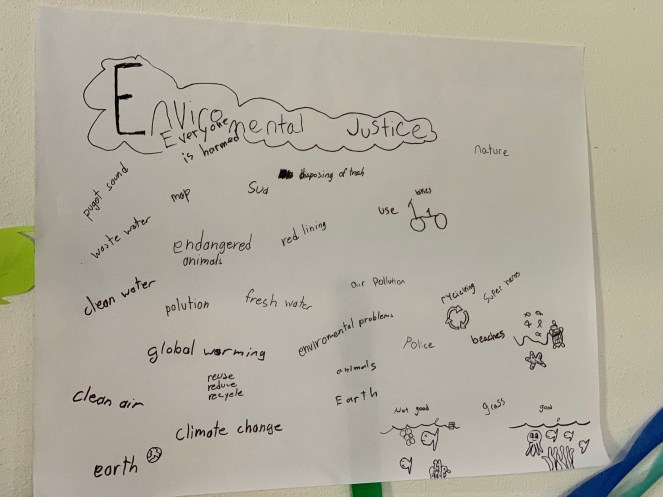 Enviromental Justice
Everyone
is harmed
nature
pugot sound
map
Sua
disposing of trash
bikes
use
waste water
endangered
animals
red lining
clean water
polution
fresh water
air Pollution
rycicling
Super heros
enviromental problems
Police
beaches
global worming
reuse
reduce
recycle
animals
Earth
clean air
Not good
grass
good
Climate change
earth